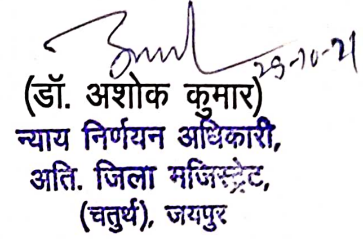 29-10-21
(डॉ. अशोक कुमार)
न्याय निर्णयन अधिकारी,
अति. जिला मजिस्ट्रेट,
(चतुर्थ), जयपुर